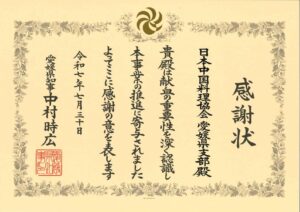 感謝状
日本中国料理協会 愛媛県支部殿
貴殿は献血の重要性を深く認識し
本事業の推進に寄与されました
よってここに感謝の意を表します
令和七年七月三十日
愛媛県知事 中村時広